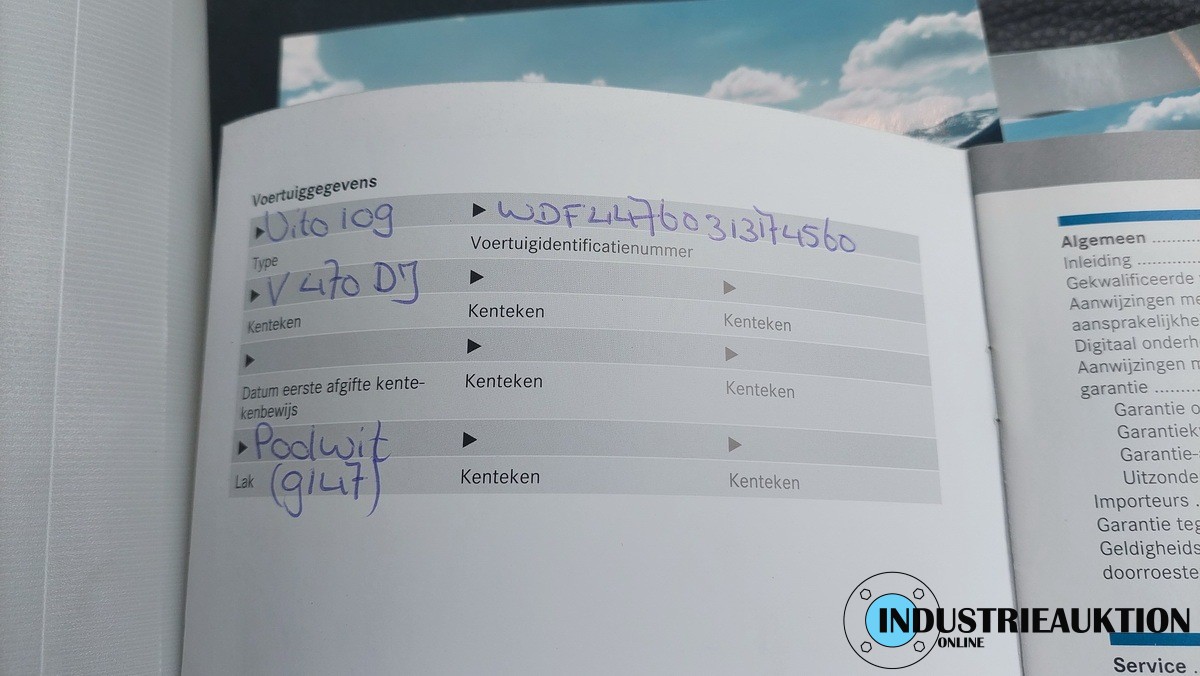 Voertuiggegevens
▶ Vito 109 ▶ WDF44760313174560
Type Voertuigidentificatienummer
▶ V 470 DJ ▶ ▶
Kenteken Kenteken Kenteken
▶ ▶ ▶
Datum eerste afgifte kente-
kenbewijs Kenteken Kenteken
▶ Poolwit ▶ ▶
Lak (9147) Kenteken Kenteken
Algemeen
Inleiding
Gekwalificeerde
Aanwijzingen
aansprakelijkhe
Digitaal onderh
Aanwijzingen
garantie
Garantie
Garantiek
Garantie-
Uitzonde
Importeurs
Garantie teg
Geldigheids
doorroeste
Service
INDUSTRIEAUKTION
ONLINE